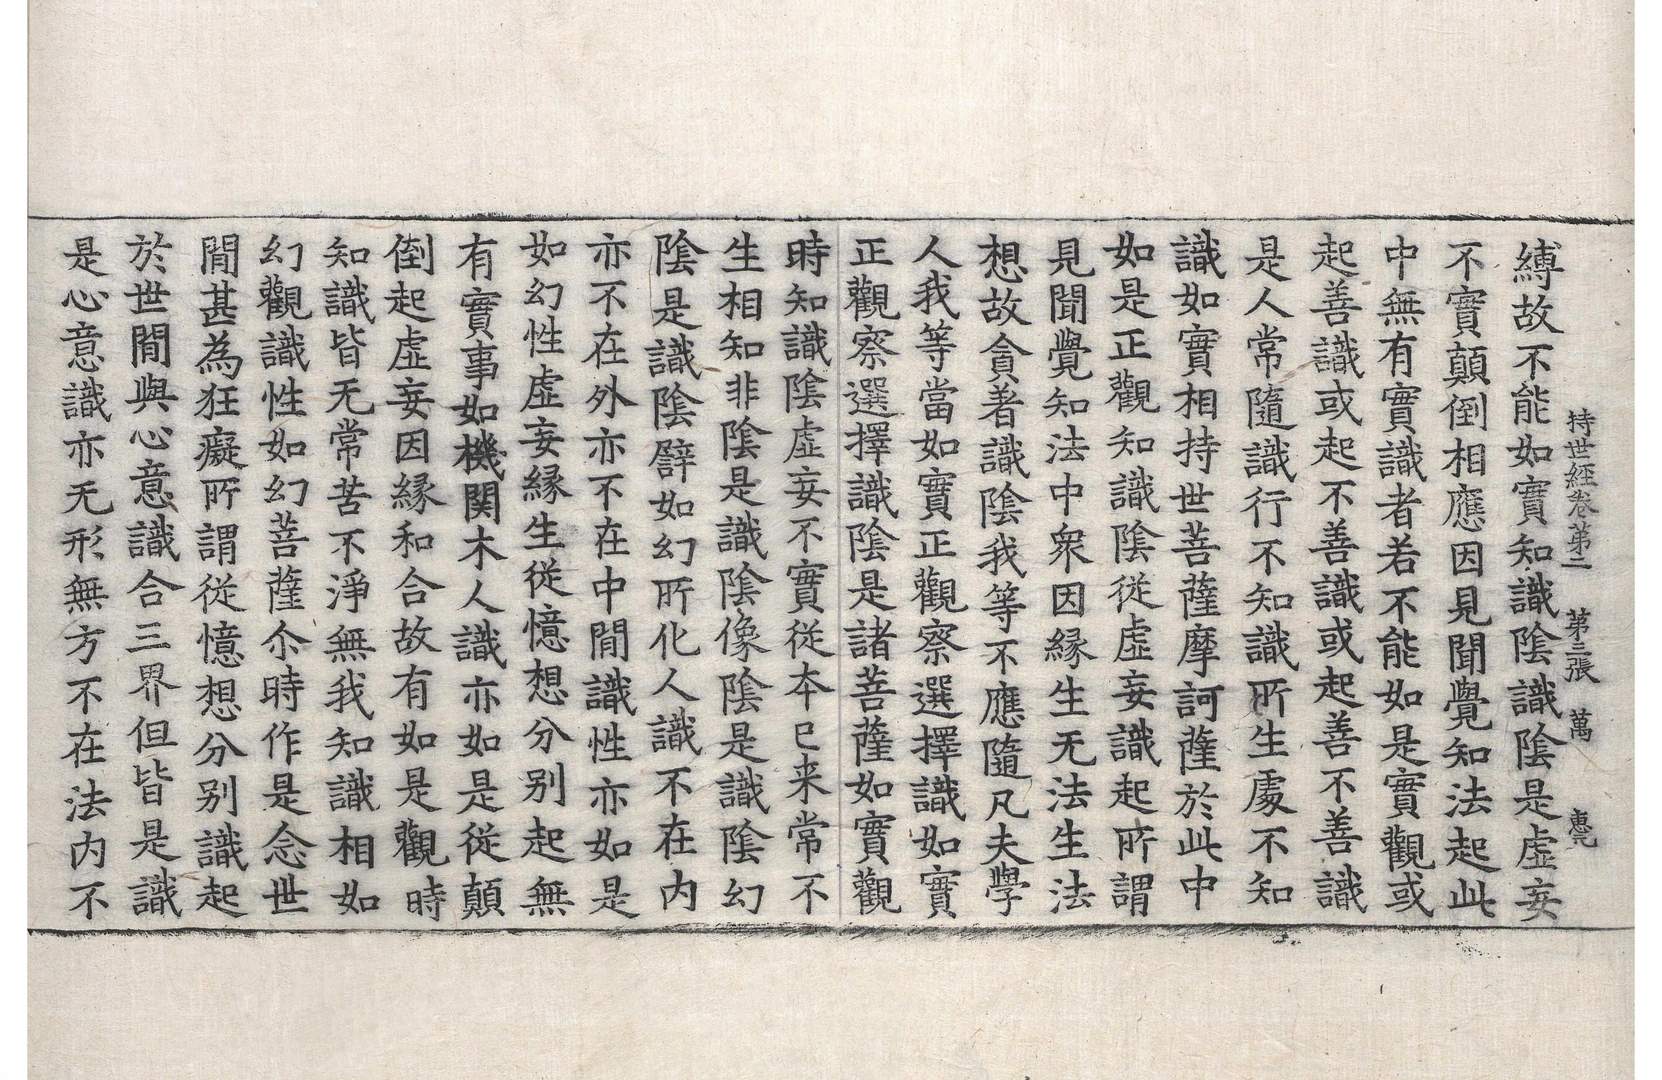 持世經卷第二 第三張 萬 惠元
縛故不能如實知識陰識陰是虛妄
不實顛倒相應因見聞覺知法起此
中無有實識者若不能如是實觀或
起善識或起不善識或起善不善識
是人常隨識行不知識所生處不知
識如實相持世菩薩摩訶薩於此中
如是正觀知識陰從虛妄識起所謂
見聞覺知法中衆因緣生无法生法
想故貪著識陰我等不應隨凡夫學
人我等當如實正觀察選擇識如實
正觀察選擇識陰是諸菩薩如實觀
時知識陰虛妄不實從本已来常不
生相知非陰是識陰像陰是識陰幻
陰是識陰譬如幻所化人識不在内
亦不在外亦不在中間識性亦如是
如幻性虛妄緣生從憶想分别起無
有實事如機関木人識亦如是從顛
倒起虛妄因緣和合故有如是觀時
知識皆无常苦不淨無我知識相如
幻觀識性如幻菩薩尒時作是念世
間甚為狂癡所謂從憶想分别識起
於世間與心意識合三界但皆是識
是心意識亦无形無方不在法内不